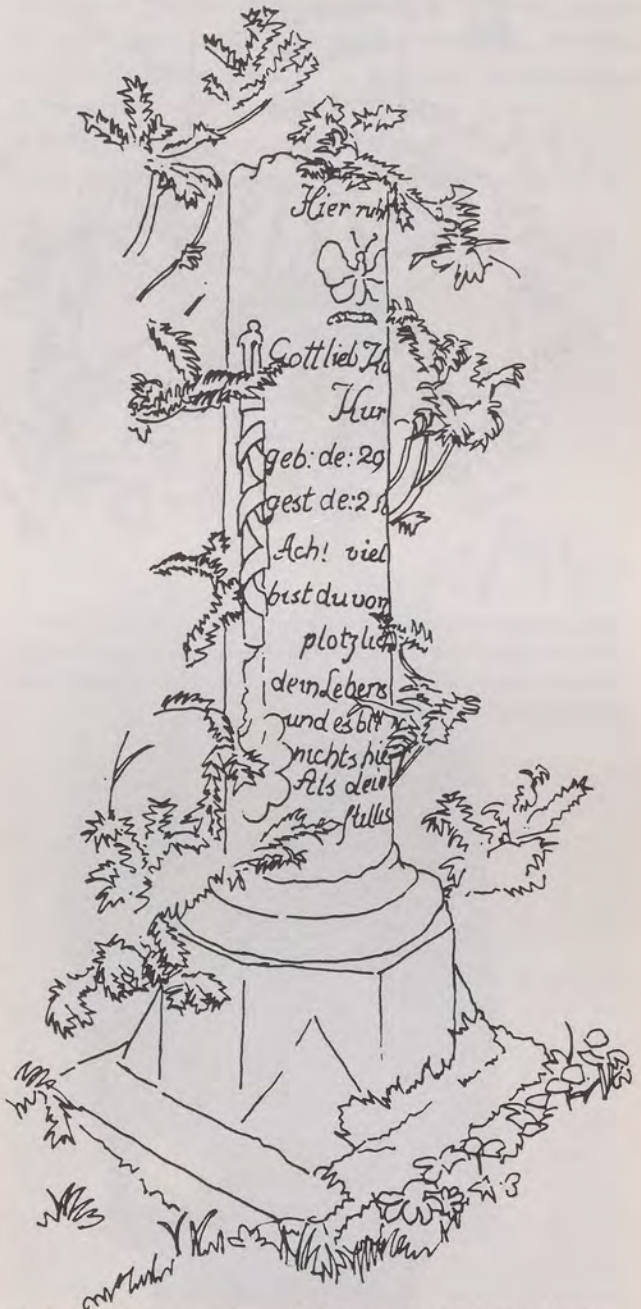 Hier ruh
Gottlieb H
Hur
geb: de: 29
gest de: 2
Ach! viel
bist du von
plotzlich
dein Lebens
und es bl
nichts hie
Als dein
stilles